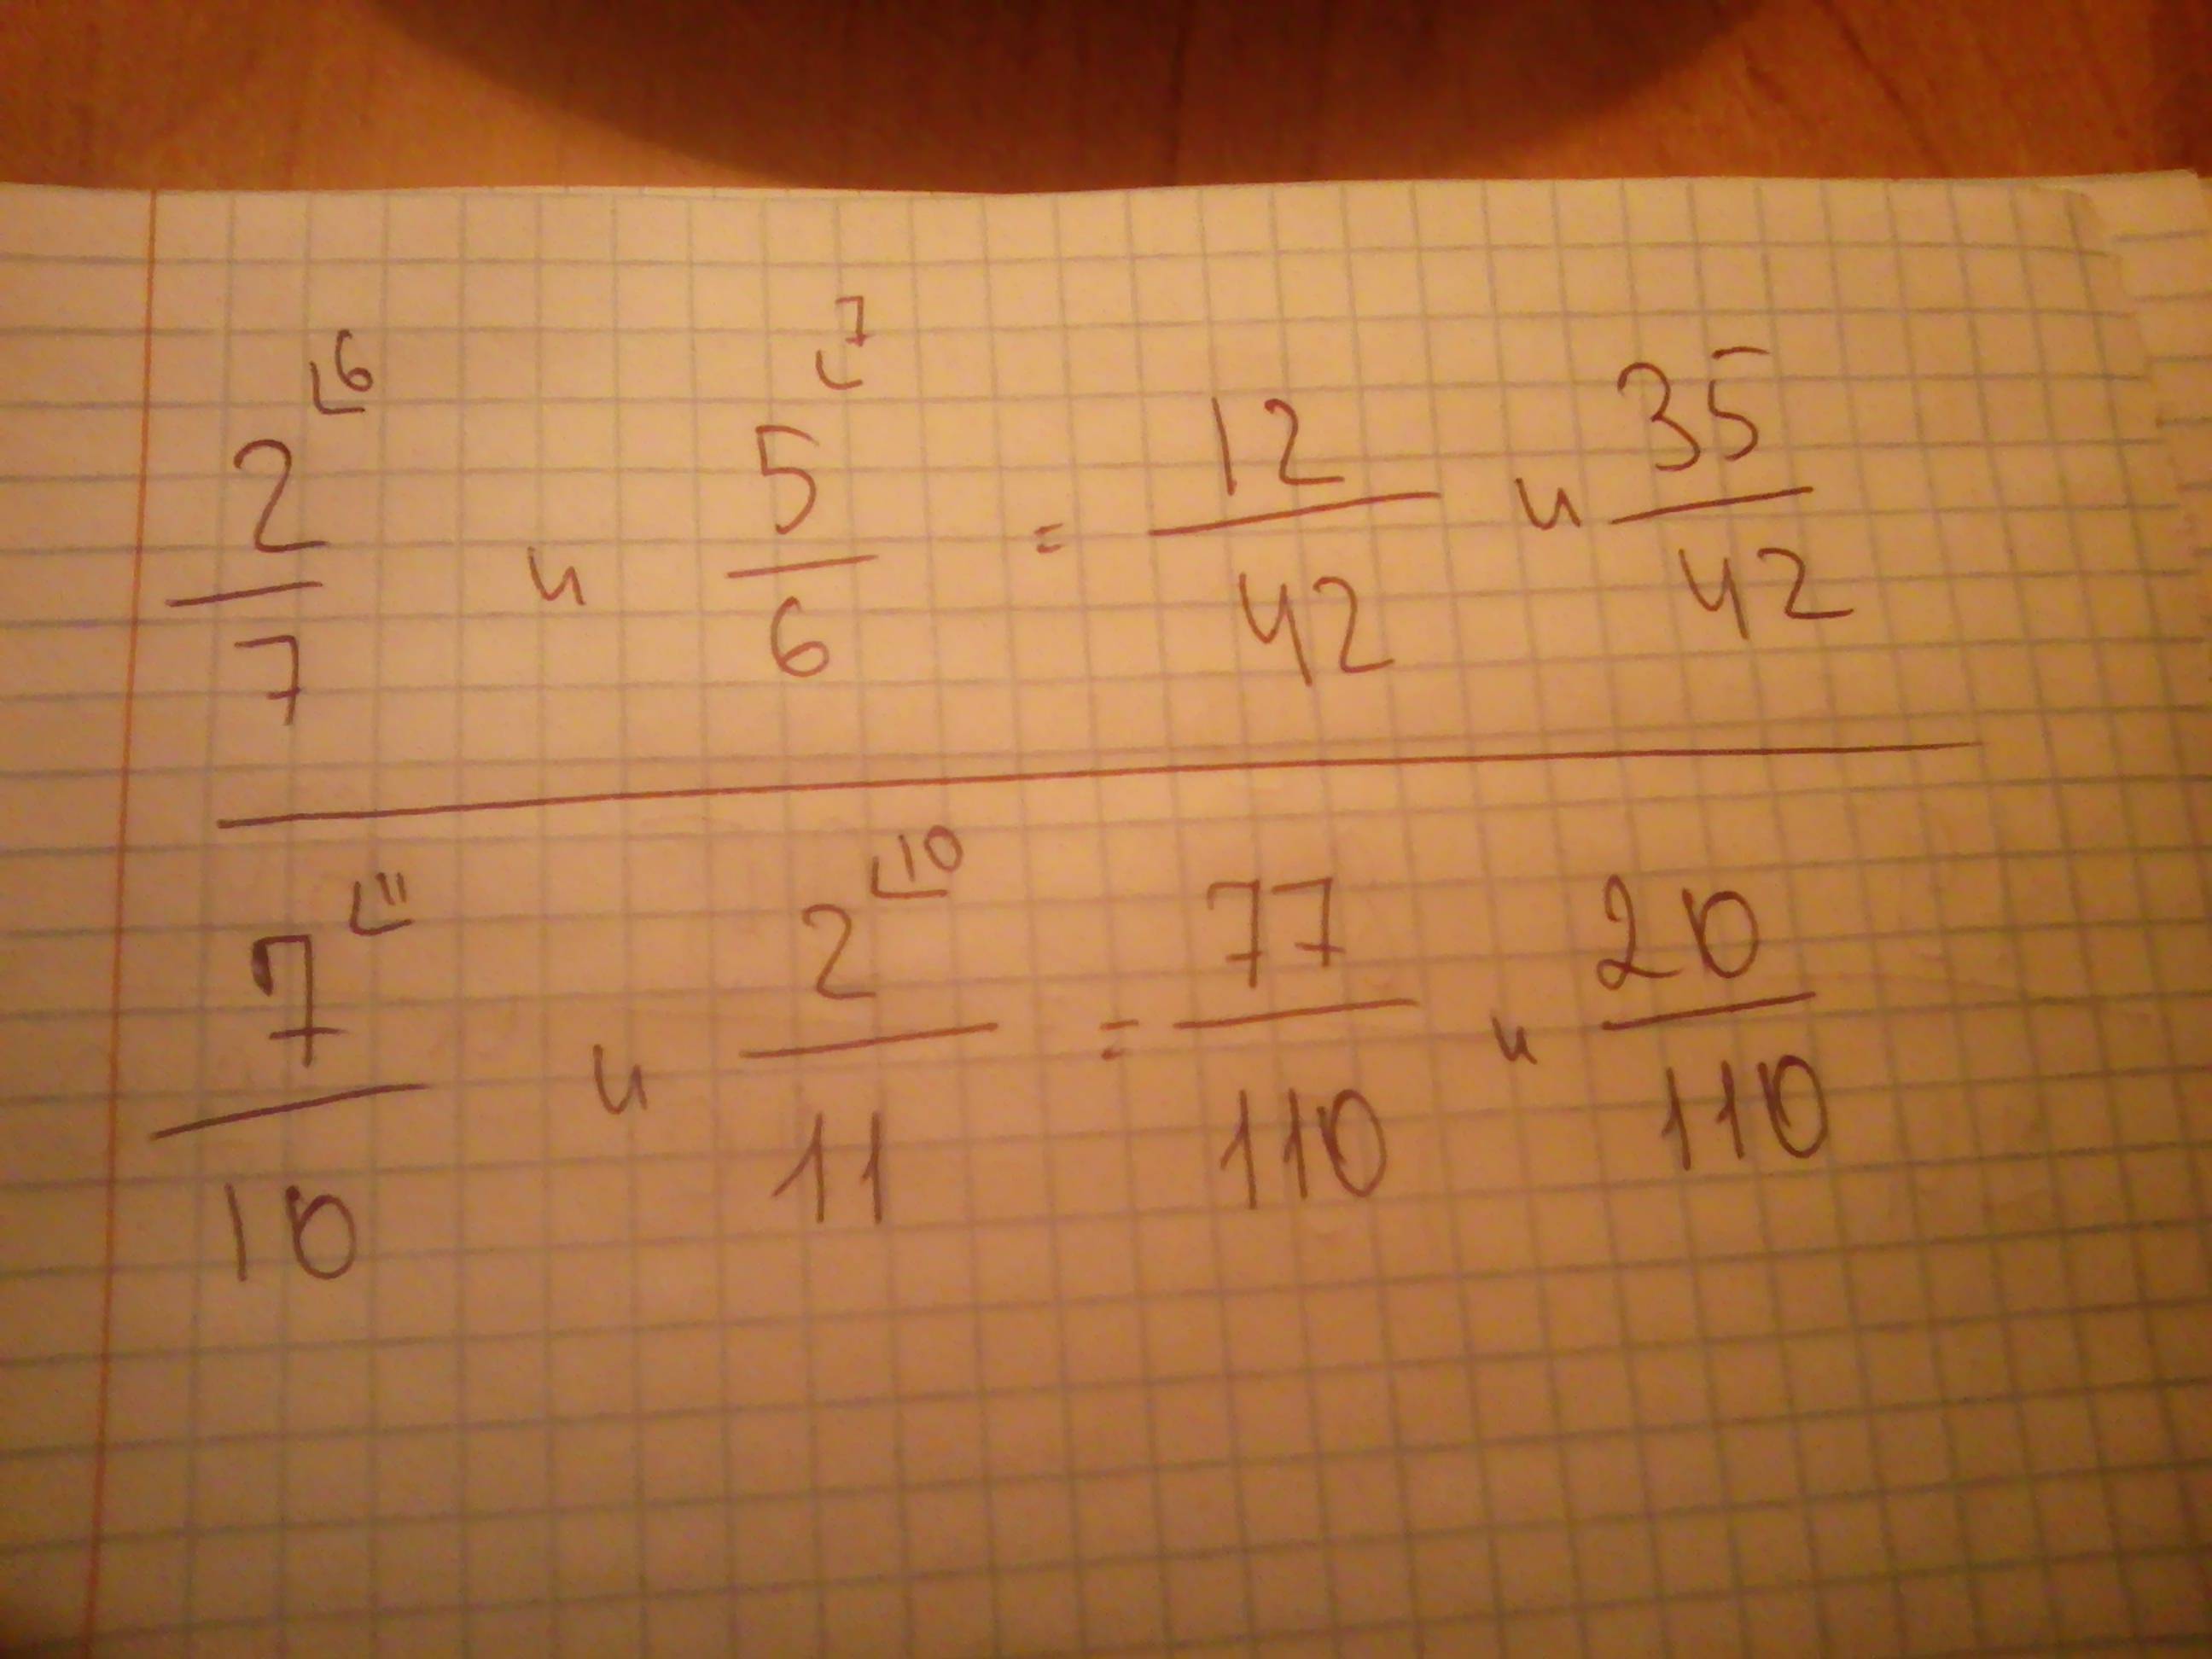 2⌊6/7 и 5⌊7/6 = 12/42 и 35/42
7⌊11/10 и 2⌊10/11 = 77/110 и 20/110